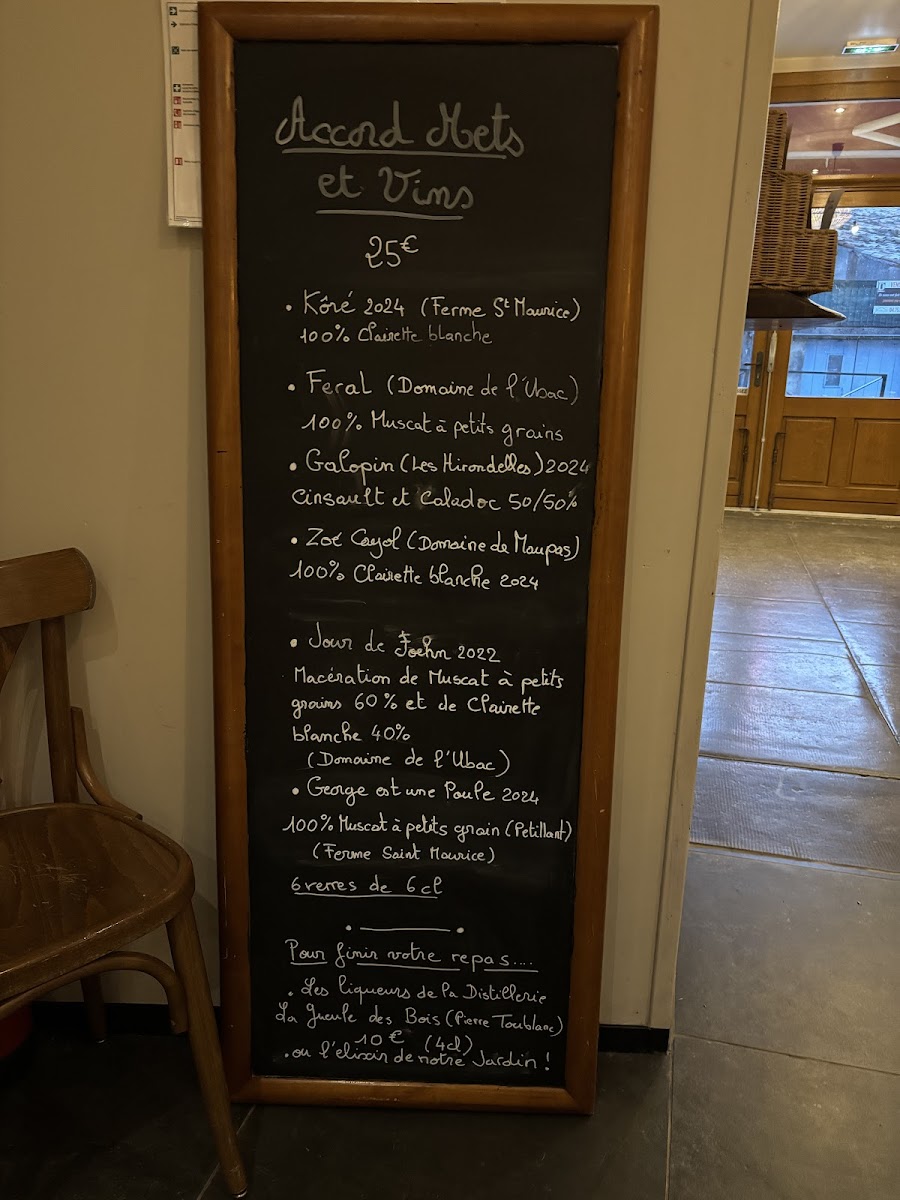 Accord Mets
et Vins
25€
• Kôré 2024 (Ferme St Maurice)
100% Clairette blanche
• Feral (Domaine de l'Ubac)
100% Muscat à petits grains
• Galopin (Les Hirondelles) 2024
Cinsault et Caladoc 50/50%
• Zoé Cayol (Domaine de Maupas)
100% Clairette blanche 2024
• Jour de Foehn 2022
Macération de Muscat à petits
grains 60% et de Clairette
blanche 40%
(Domaine de l'Ubac)
• George est une Poule 2024
100% Muscat à petits grain (Petillant)
(Ferme Saint Maurice)
6 verres de 6 cl
Pour finir votre repas....
• Les liqueurs de la Distillerie
La Gueule des Bois (Pierre Toublanc)
10€ (4cl)
• ou l'élixir de notre Jardin !